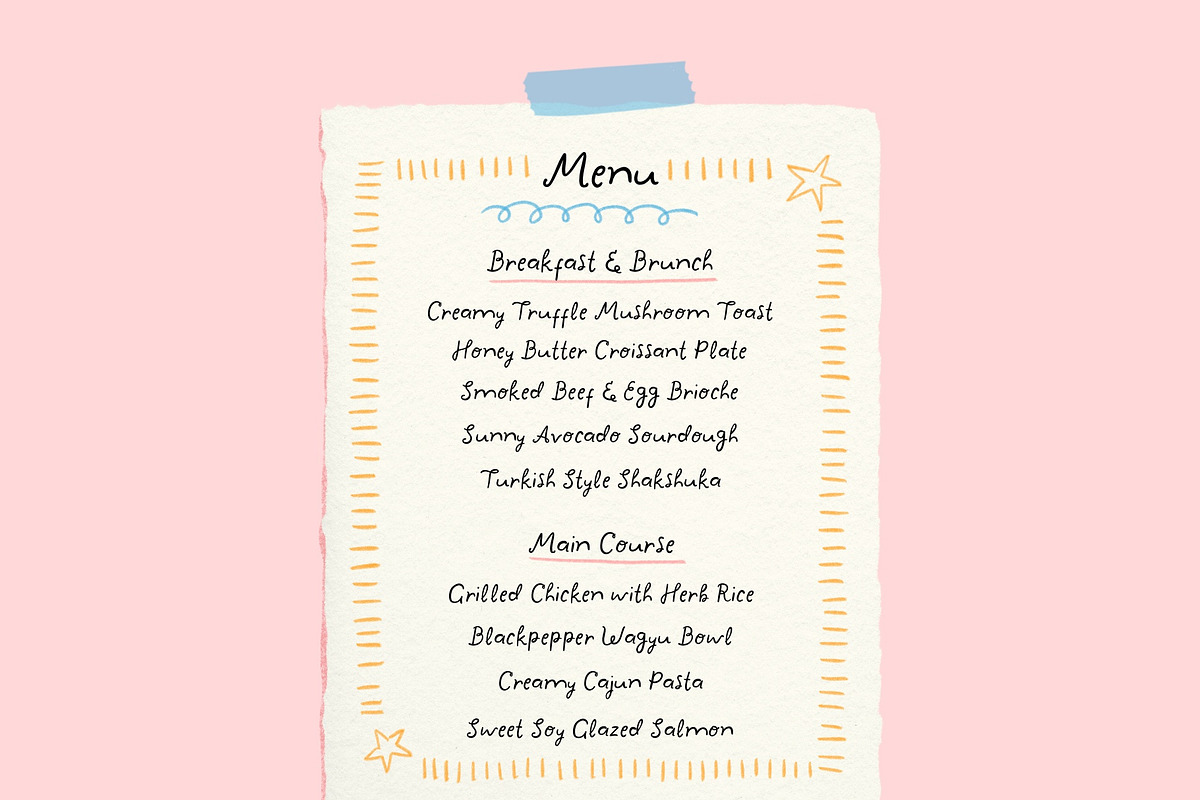 Menu
Breakfast & Brunch
Creamy Truffle Mushroom Toast
Honey Butter Croissant Plate
Smoked Beef & Egg Brioche
Sunny Avocado Sourdough
Turkish Style Shakshuka
Main Course
Grilled Chicken with Herb Rice
Blackpepper Wagyu Bowl
Creamy Cajun Pasta
Sweet Soy Glazed Salmon